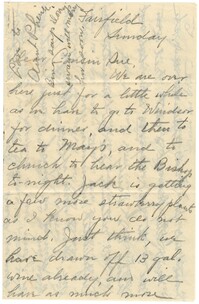 Fairfield
Sunday
Dear Cousin Sue.
We are over
here just for a little while
as we han to go to Windsor
for dinner, and then to
tea to May's, and to
church to hear the Bishop
to-night. Jack is getting
a few more strawberry plants
as I know you do not
mind. Just think, we
have drawn off 13 gal.
wine already, and will
han as much more